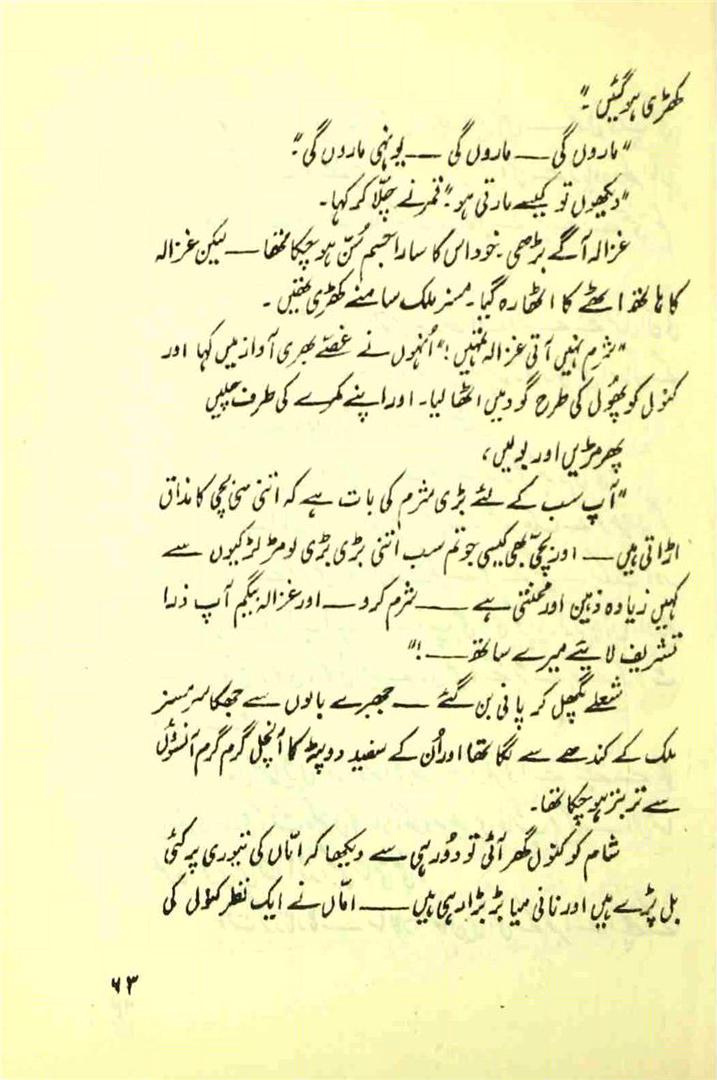 کھڑی ہو گئیں۔"
"ماروں گی — ماروں گی — یونہی ماروں گی"۔
"دیکھوں تو کیسے مارتی ہو"؛ قمر نے چلّا کر کہا۔
غزالہ آگے بڑھی۔ خود اس کا سارا جسم سُن ہو چکا تھا — لیکن غزالہ
کا ہاتھ اٹھے کا اٹھا رہ گیا۔ مسز ملک سامنے کھڑی تھیں۔
"شرم نہیں آتی غزالہ تمہیں!" اُنہوں نے غصّے بھری آواز میں کہا اور
کنول کو پھُول کی طرح گود میں اٹھا لیا۔ اور اپنے کمرے کی طرف چلیں
پھر مڑیں اور بولیں،
"آپ سب کے لئے بڑی شرم کی بات ہے کہ اتنی سی بچی کا مذاق
اڑاتی ہیں — اور بچّی بھی کیسی جو تم سب اتنی بڑی بڑی لومڑ لڑکیوں سے
کہیں زیادہ ذہین اور محنتی ہے — شرم کرو — اور غزالہ بیگم آپ ذرا
تشریف لائیے میرے ساتھ — !"
شعلے پگھل کر پانی بن گئے — جھبرے بالوں سے جھکا سر مسز
ملک کے کندھے سے لگا تھا اور اُن کے سفید دوپٹہ کا آنچل گرم گرم آنسوؤں
سے تربتر ہو چکا تھا۔
شام کو کنول گھر آئی تو دُور ہی سے دیکھا کہ امّاں کی تیوری پر کئی
بل پڑے ہیں اور نانی میا بڑبڑا رہی ہیں — امّاں نے ایک نظر کنول کی
۶۳